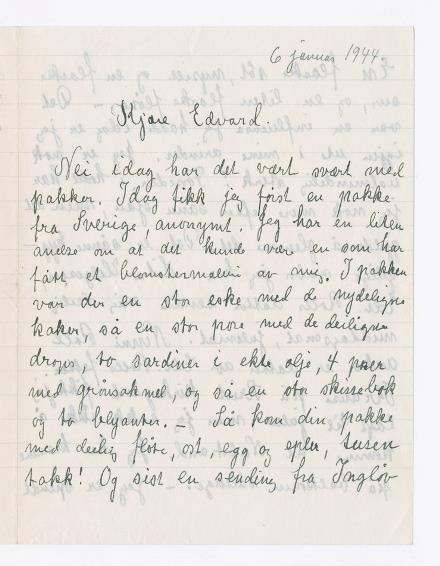 6 januar 1944.
Kjære Edvard.
Nei idag har det vært svært med
pakker. Idag fikk jeg først en pakke
fra Sverige, anonymt. Jeg har en liten
anelse om at det kunde være en som har
fått et blomstermaleri av mig. I pakken
var der en stor eske med de nydeligste
kaker, så en stor pose med de deiligste
drops, to sardiner i ekte olje, 4 poser
med grönsakmel, og så en stor skissebok
og to blyanter. – Så kom din pakke
med deilig fløte, ost, egg og epler, tusen
takk! Og sist en sending fra Ingløv